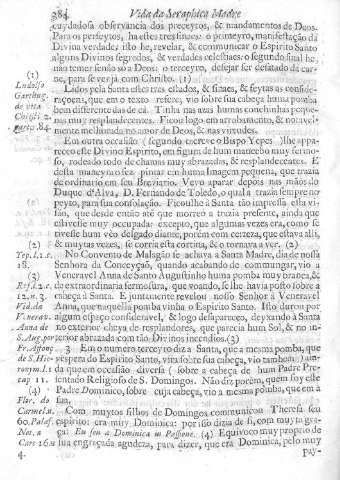 384. Vida da Seraphica Madre
cuydadosa observancia dos preceytos, & mandamentos de Deos.
Para os perfeytos, ha estes tres sinaes: o primeyro, manifestação da
Divina verdade; isto he, revelar, & communicar o Espirito Santo
alguns Divinos segredos, & verdades celestiaes: o segundo sinal he,
não temer senão só a Deos: o terceyro, desejar ser desatado da car-
ne, para se ver já com Christo. (1)
(1)
Ludolfo
Carthug.
de vita
Christi 2.
parte. 84.
Lidos pela Santa estes tres estados, & sinaes, & feytas as conside-
raçoens, que em o texto refere, vio sobre sua cabeça huma pomba
bem differente das de cá. Tinha nas azas humas conchinhas peque-
nas muy resplandecentes. Ficou logo em arrobamento, & notavel-
mente melhorada no amor de Deos, & nas virtudes.
Em outra occasião (segundo escreve o Bispo Yepes) lhe appa-
receo este Divino Espirito, em figura de hum mancebo muy fermo-
so, rodeado todo de chamas muy abrazadas, & resplandecentes. E
desta maneyra so a pintar em huma Imagem pequena, que trazia
de ordinario em seu Breviario. Veyo aparar depois nas mãos do
Duque d'Alva, D. Fernando de Toledo, o qual a trazia sempre no
peyto, para sua consolação. Ficoulhe á Santa tão impressa esta vi-
são, que desde então até que morreo a trazia presente, ainda que
estivesse muy occupada: excepto, que algumas vezes era, como se
tivesse hum veo delgado diante, porém com certeza, que estava alli,
& muytas vezes, se corria esta cortina, & o tornava a ver. (2)
(2)
Yep. l. 1. c.
18.
(3)
Rif. l. 2. c.
12. n. 3.
Vid. da
Venerav.
Anna de
S. Aug. por
Fr. Affonso
de S. Hie-
ronym. l. 1
cap 11.
(4)
Flor. do
Carmel. n.
60. Palaf.
Not. a
Car 16. n
4.
No Convento de Malagão se achava a Santa Madre, dia de nossa
Senhora da Conceyção, quando acabando de commungar, vio a
Veneravel Anna de Santo Augustinho huma pomba muy branca, &
de extraordinaria fermosura, que voando, se lhe havia posto sobre a
cabeça á Santa. E juntamente revelou nosso Senhor á Veneravel
Anna, que naquella pomba vinha o Espirito Santo. Isto durou por
algum espaço consideravel, & logo desapareceo, deyxando á Santa
no exterior cheya de resplandores, que parecia hum Sol, & no in-
terior abrazada com tão Divinos incendios. (3)
3 Em o numero terceyro diz a Santa, que a mesma pomba, que
vespera do Espirito Santo, vira sobre sua cabeça, vio tambem
da quem occasião diversa (sobre a cabeça de hum Padre Pre-
sentado Religioso de S. Domingos. Não diz porém, quem foy este
Padre Dominico, sobre cuja cabeça, vio a mesma pomba, que em a
sua.
Com muytos filhos de Domingos communicou Theresa seu
espirito: era muy Dominica: por isso dizia de si, com muyta gra-
ça: Eu sou a Dominica in Passione. (4) Equivoco muy proprio de
sua engraçada agudeza, para dizer, que era Dominica, pelo muy
pay-